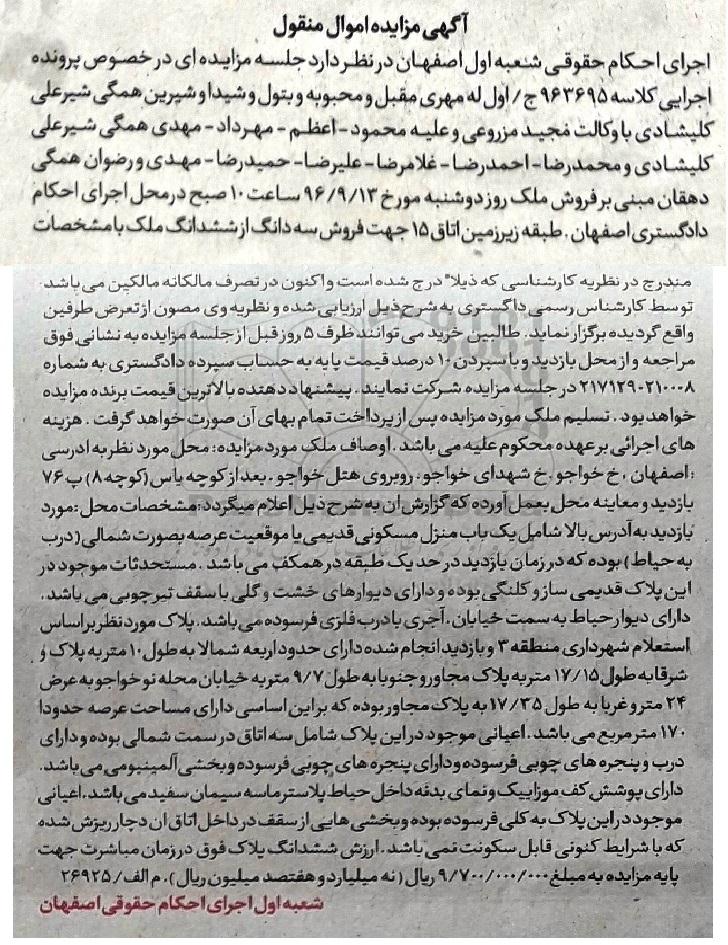 آگهی مزایده اموال منقول
اجرای احکام حقوقی شعبه اول اصفهان در نظر دارد جلسه مزایده ای در خصوص پرونده
اجرایی کلاسه ۹۶۳۶۹۵ ج/ اول له مهری مقبل و محبوبه و بتول و شیدا و شیرین همگی شیرعلی
کلیشادی با وکالت مجید مزروعی و علیه محمود - اعظم - مهرداد - مهدی همگی شیرعلی
کلیشادی و محمدرضا - احمدرضا - غلامرضا - علیرضا - حمیدرضا - مهدی و رضوان همگی
دهقان مبنی بر فروش ملک روز دوشنبه مورخ ۹۶/۹/۱۳ ساعت ۱۰ صبح در محل اجرای احکام
دادگستری اصفهان . طبقه زیرزمین اتاق ۱۵ جهت فروش سه دانگ از ششدانگ ملک با مشخصات
مندرج در نظریه کارشناسی که ذیلا" درج شده است و اکنون در تصرف مالکانه مالکین می باشد
توسط کارشناس رسمی داگستری به شرح ذیل ارزیابی شده و نظریه وی مصون از تعرض طرفین
واقع گردیده برگزار نماید. طالبین خرید می توانند ظرف ۵ روز قبل از جلسه مزایده به نشانی فوق
مراجعه و از محل بازدید و با سپردن ۱۰ درصد قیمت پایه به حساب سپرده دادگستری به شماره
۲۱۷۱۲۹۰۲۱۰۰۰۸ در جلسه مزایده شرکت نمایند . پیشنهاد دهنده بالاترین قیمت برنده مزایده
خواهد بود . تسلیم ملک مورد مزایده پس از پرداخت تمام بهای آن صورت خواهد گرفت . هزینه
های اجرائی بر عهده محکوم علیه می باشد . اوصاف ملک مورد مزایده: محل مورد نظر به ادرسی
: اصفهان . خ خواجو . خ شهدای خواجو . روبروی هتل خواجو . بعد از کوچه یاس (کوچه ۸) پ ۷۶
بازدید و معاینه محل بعمل آورده که گزارش ان به شرح ذیل اعلام میگردد: مشخصات محل: مورد
بازدید به آدرس بالا شامل یک باب منزل مسکونی قدیمی با موقعیت عرصه بصورت شمالی (درب
به حیاط) بوده که در زمان بازدید در حد یک طبقه در همکف می باشد . مستحدثات موجود در
این پلاک قدیمی ساز و کلنگی بوده و دارای دیوارهای خشت و گلی با سقف تیر چوبی می باشد.
دارای دیوار حیاط به سمت خیابان . آجری با درب فلزی فرسوده می باشد . پلاک مورد نظر بر اساس
استعلام شهرداری منطقه ۳ و بازدید انجام شده دارای حدود اربعه شمالا به طول ۱۰ متر به پلاک و
شرقا به طول ۱۷/۱۵ متر به پلاک مجاور و جنوبا به طول ۹/۷ متر به خیابان محله نو خواجو به عرض
۲۴ متر و غربا به طول ۱۷/۳۵ به پلاک مجاور بوده که بر این اساسی دارای مساحت عرصه حدودا
۱۷۰ متر مربع می باشد . اعیانی موجود در این پلاک شامل سه اتاق در سمت شمالی بوده و دارای
درب و پنجره های چوبی فرسوده و دارای پنجره های چوبی فرسوده و بخشی آلمینیومی می باشد.
دارای پوشش کف موزاییک و نمای بدنه داخل حیاط پلاستر ماسه سیمان سفید می باشد . اعیانی
موجود در این پلاک به کلی فرسوده بوده و بخشی هایی از سقف در داخل اتاق ان دچار ریزش شده
که با شرایط کنونی قابل سکونت نمی باشد . ارزش ششدانگ پلاک فوق در زمان مباشرت جهت
پایه مزایده به مبلغ ۹/۷۰۰/۰۰۰/۰۰۰ ریال ( نه میلیارد و هفتصد میلیون ریال ). م الف/ ۲۶۹۲۵
شعبه اول اجرای احکام حقوقی اصفهان